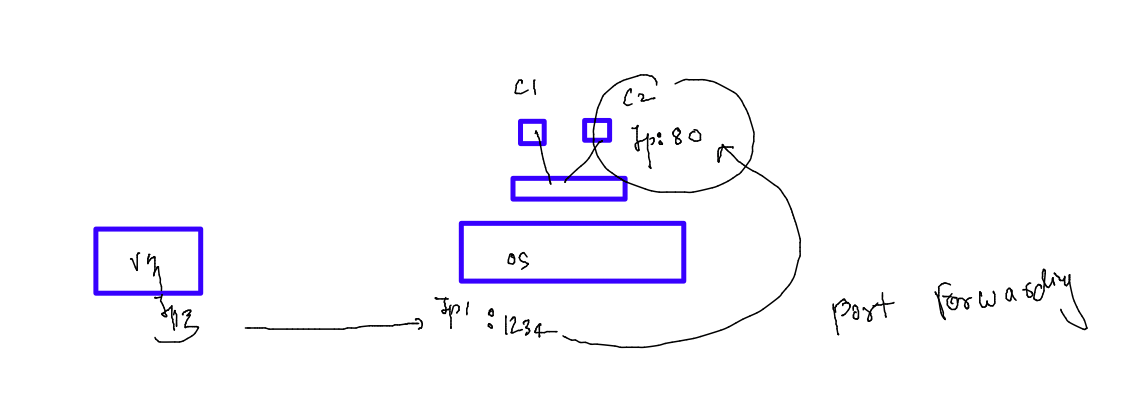 C1
C2
Ip:80
OS
Ip1 :1234
port forwarding